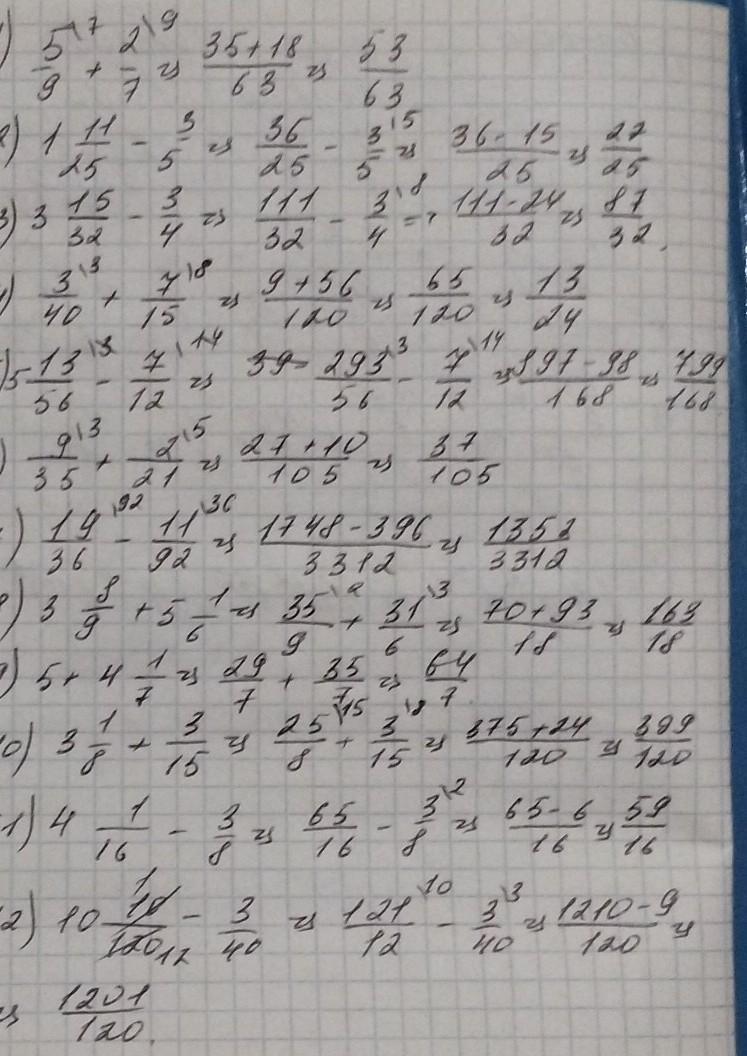 ) 5/9\7 + 2/7\9 = (35+18)/63 = 53/63
2) 1 11/25 - 3/5 = 36/25 - 3/5\5 = (36-15)/25 = 22/25
3) 3 15/32 - 3/4 = 111/32 - 3/4\8 = (111-24)/32 = 87/32.
) 3/40\3 + 7/15\8 = (9+56)/120 = 65/120 = 13/24
) 5 13/56\3 - 7/12\14 = 293/56\3 - 7/12\14 = (897-98)/168 = 799/168
) 9/35\3 + 2/21\5 = (27+10)/105 = 37/105
) 19/36\92 - 11/92\36 = (1748-396)/3312 = 1352/3312
8) 3 8/9 + 5 1/6 = 35/9\2 + 31/6\3 = (70+93)/18 = 163/18
) 5 + 4 1/7 = 29/7 + 35/7 = 64/7
10) 3 1/8 + 3/15 = 25/8\15 + 3/15\8 = (375+24)/120 = 399/120
1) 4 1/16 - 3/8 = 65/16 - 3/8\2 = (65-6)/16 = 59/16
2) 10 10/120 1/12 - 3/40 = 121/12\10 - 3/40\3 = (1210-9)/120 =
= 1201/120.